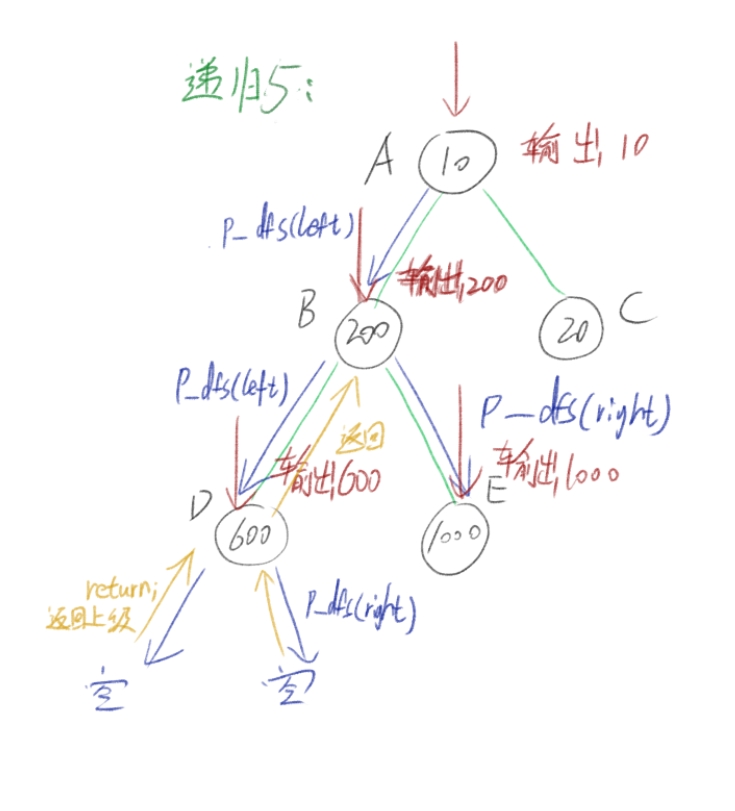 递归5:
A
10
输出,10
P_dfs(left)
输出,200
B
200
20
C
P_dfs(left)
返回
P_dfs(right)
输出,600
输出,1000
D
600
E
1000
return;
返回上级
P_dfs(right)
空
空